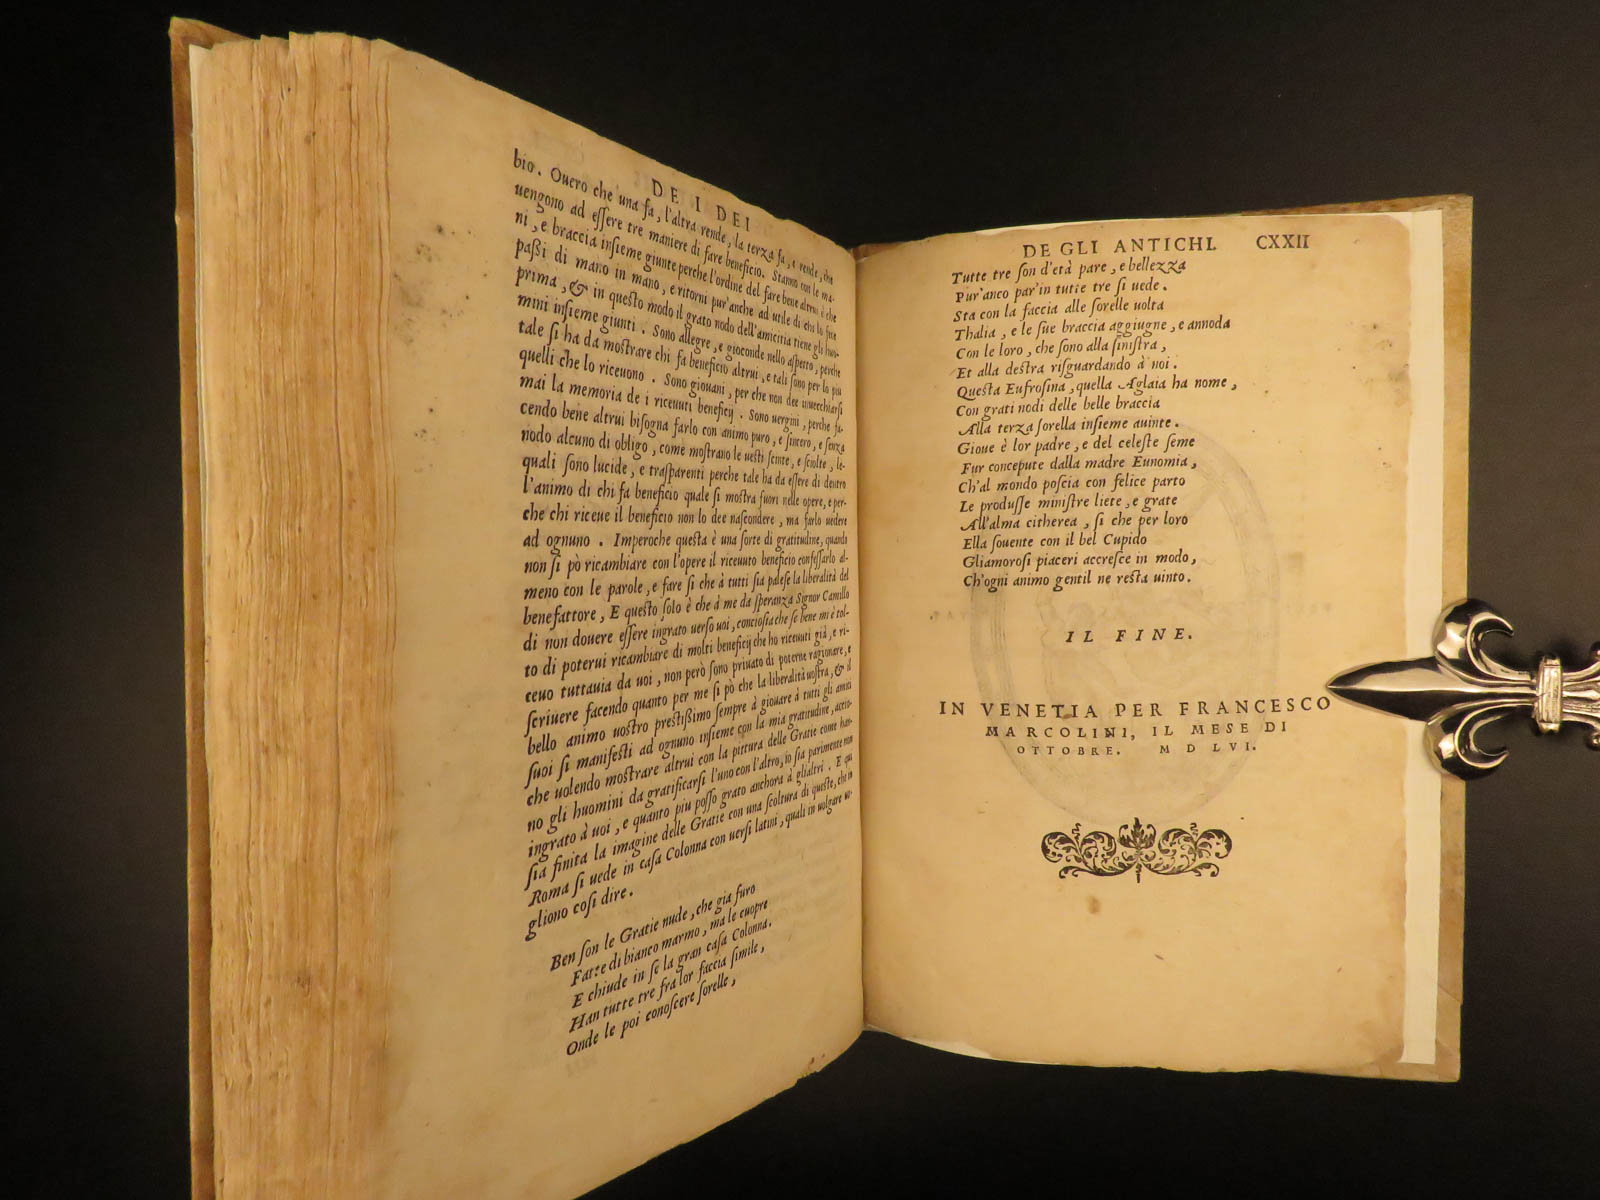 DE I DEI
bio. Ouero che una fa, l'altra rende, la terza fa, e rende, che
uengono ad eſſere tre maniere di fare beneficio. Stanno con le ma-
ni, e braccia inſieme giunte perche l'ordine del fare bene altrui è che
paßi di mano in mano, e ritorni pur'anche ad utile di chi lo fece
prima, & in queſto modo il grato nodo dell'amicitia tiene gli huo-
mini inſieme giunti. Sono allegre, e gioconde nello aſpetto, perche
tale ſi ha da moſtrare chi fa beneficio altrui, e tali ſono per lo piu
quelli che lo riceuono. Sono giouani, per che non dee inuecchiarſi
mai la memoria de i riceuuti beneficij. Sono uergini, perche fa-
cendo bene altrui biſogna farlo con animo puro, e ſincero, e ſenza
nodo alcuno di obligo, come moſtrano le ueſti ſcinte, e ſciolte, le-
quali ſono lucide, e traſparenti perche tale ha da eſſere di dentro
l'animo di chi fa beneficio quale ſi moſtra fuori nelle opere, e per-
che chi riceue il beneficio non lo dee naſcondere, ma farlo uedere
ad ognuno. Imperoche queſta è una ſorte di gratitudine, quando
non ſi pò ricambiare con l'opere il riceuuto beneficio confeſſarlo al-
meno con le parole, e fare ſi che à tutti ſia paleſe la liberalità del
benefattore, E queſto ſolo è che à me da ſperanza Signor Camillo
di non douere eſſere ingrato uerſo uoi, concioſia che ſe bene mi è tol-
to di poterui ricambiare di molti beneficij che ho riceuuti già, e ri-
ceuo tuttauia da uoi, non però ſono priuato di poterne ragionare, e
ſcriuere facendo quanto per me ſi pò che la liberalità uoſtra, & il
bello animo uoſtro preſtißimo ſempre à giouare à tutti gli amici
ſuoi ſi manifeſti ad ognuno inſieme con la mia gratitudine, accio-
che uolendo moſtrare altrui con la pittura delle Gratie come han-
no gli huomini da gratificarſi l'uno con l'altro, io ſia parimente non
ingrato à uoi, e quanto piu poſſo grato anchora à glialtri. E qui
ſia finita la imagine delle Gratie con una ſcoltura di queſte, che in
Roma ſi uede in caſa Colonna con uerſi latini, quali in uolgare uo-
gliono coſi dire.
Ben ſon le Gratie nude, che gia furo
Fatte di bianco marmo, ma le cuopre
E chiude in ſe la gran caſa Colonna.
Han tutte tre fra lor faccia ſimile,
Onde le poi conoſcere ſorelle,
DE GLI ANTICHI. CXXII
Tutte tre ſon d'età pare, e bellezza
Pur'anco par'in tutte tre ſi uede.
Sta con la faccia alle ſorelle uolta
Thalia, e le ſue braccia aggiugne, e annoda
Con le loro, che ſono alla ſiniſtra,
Et alla deſtra riſguardando à noi.
Queſta Eufroſina, quella Aglaia ha nome,
Con grati nodi delle belle braccia
Alla terza ſorella inſieme auinte.
Gioue è lor padre, e del celeſte ſeme
Fur concepute dalla madre Eunomia,
Ch'al mondo poſcia con felice parto
Le produſſe miniſtre liete, e grate
All'alma citherea, ſi che per loro
Ella ſouente con il bel Cupido
Gliamoroſi piaceri accreſce in modo,
Ch'ogni animo gentil ne reſta uinto.
IL FINE.
IN VENETIA PER FRANCESCO
MARCOLINI, IL MESE DI
OTTOBRE. MDLVI.